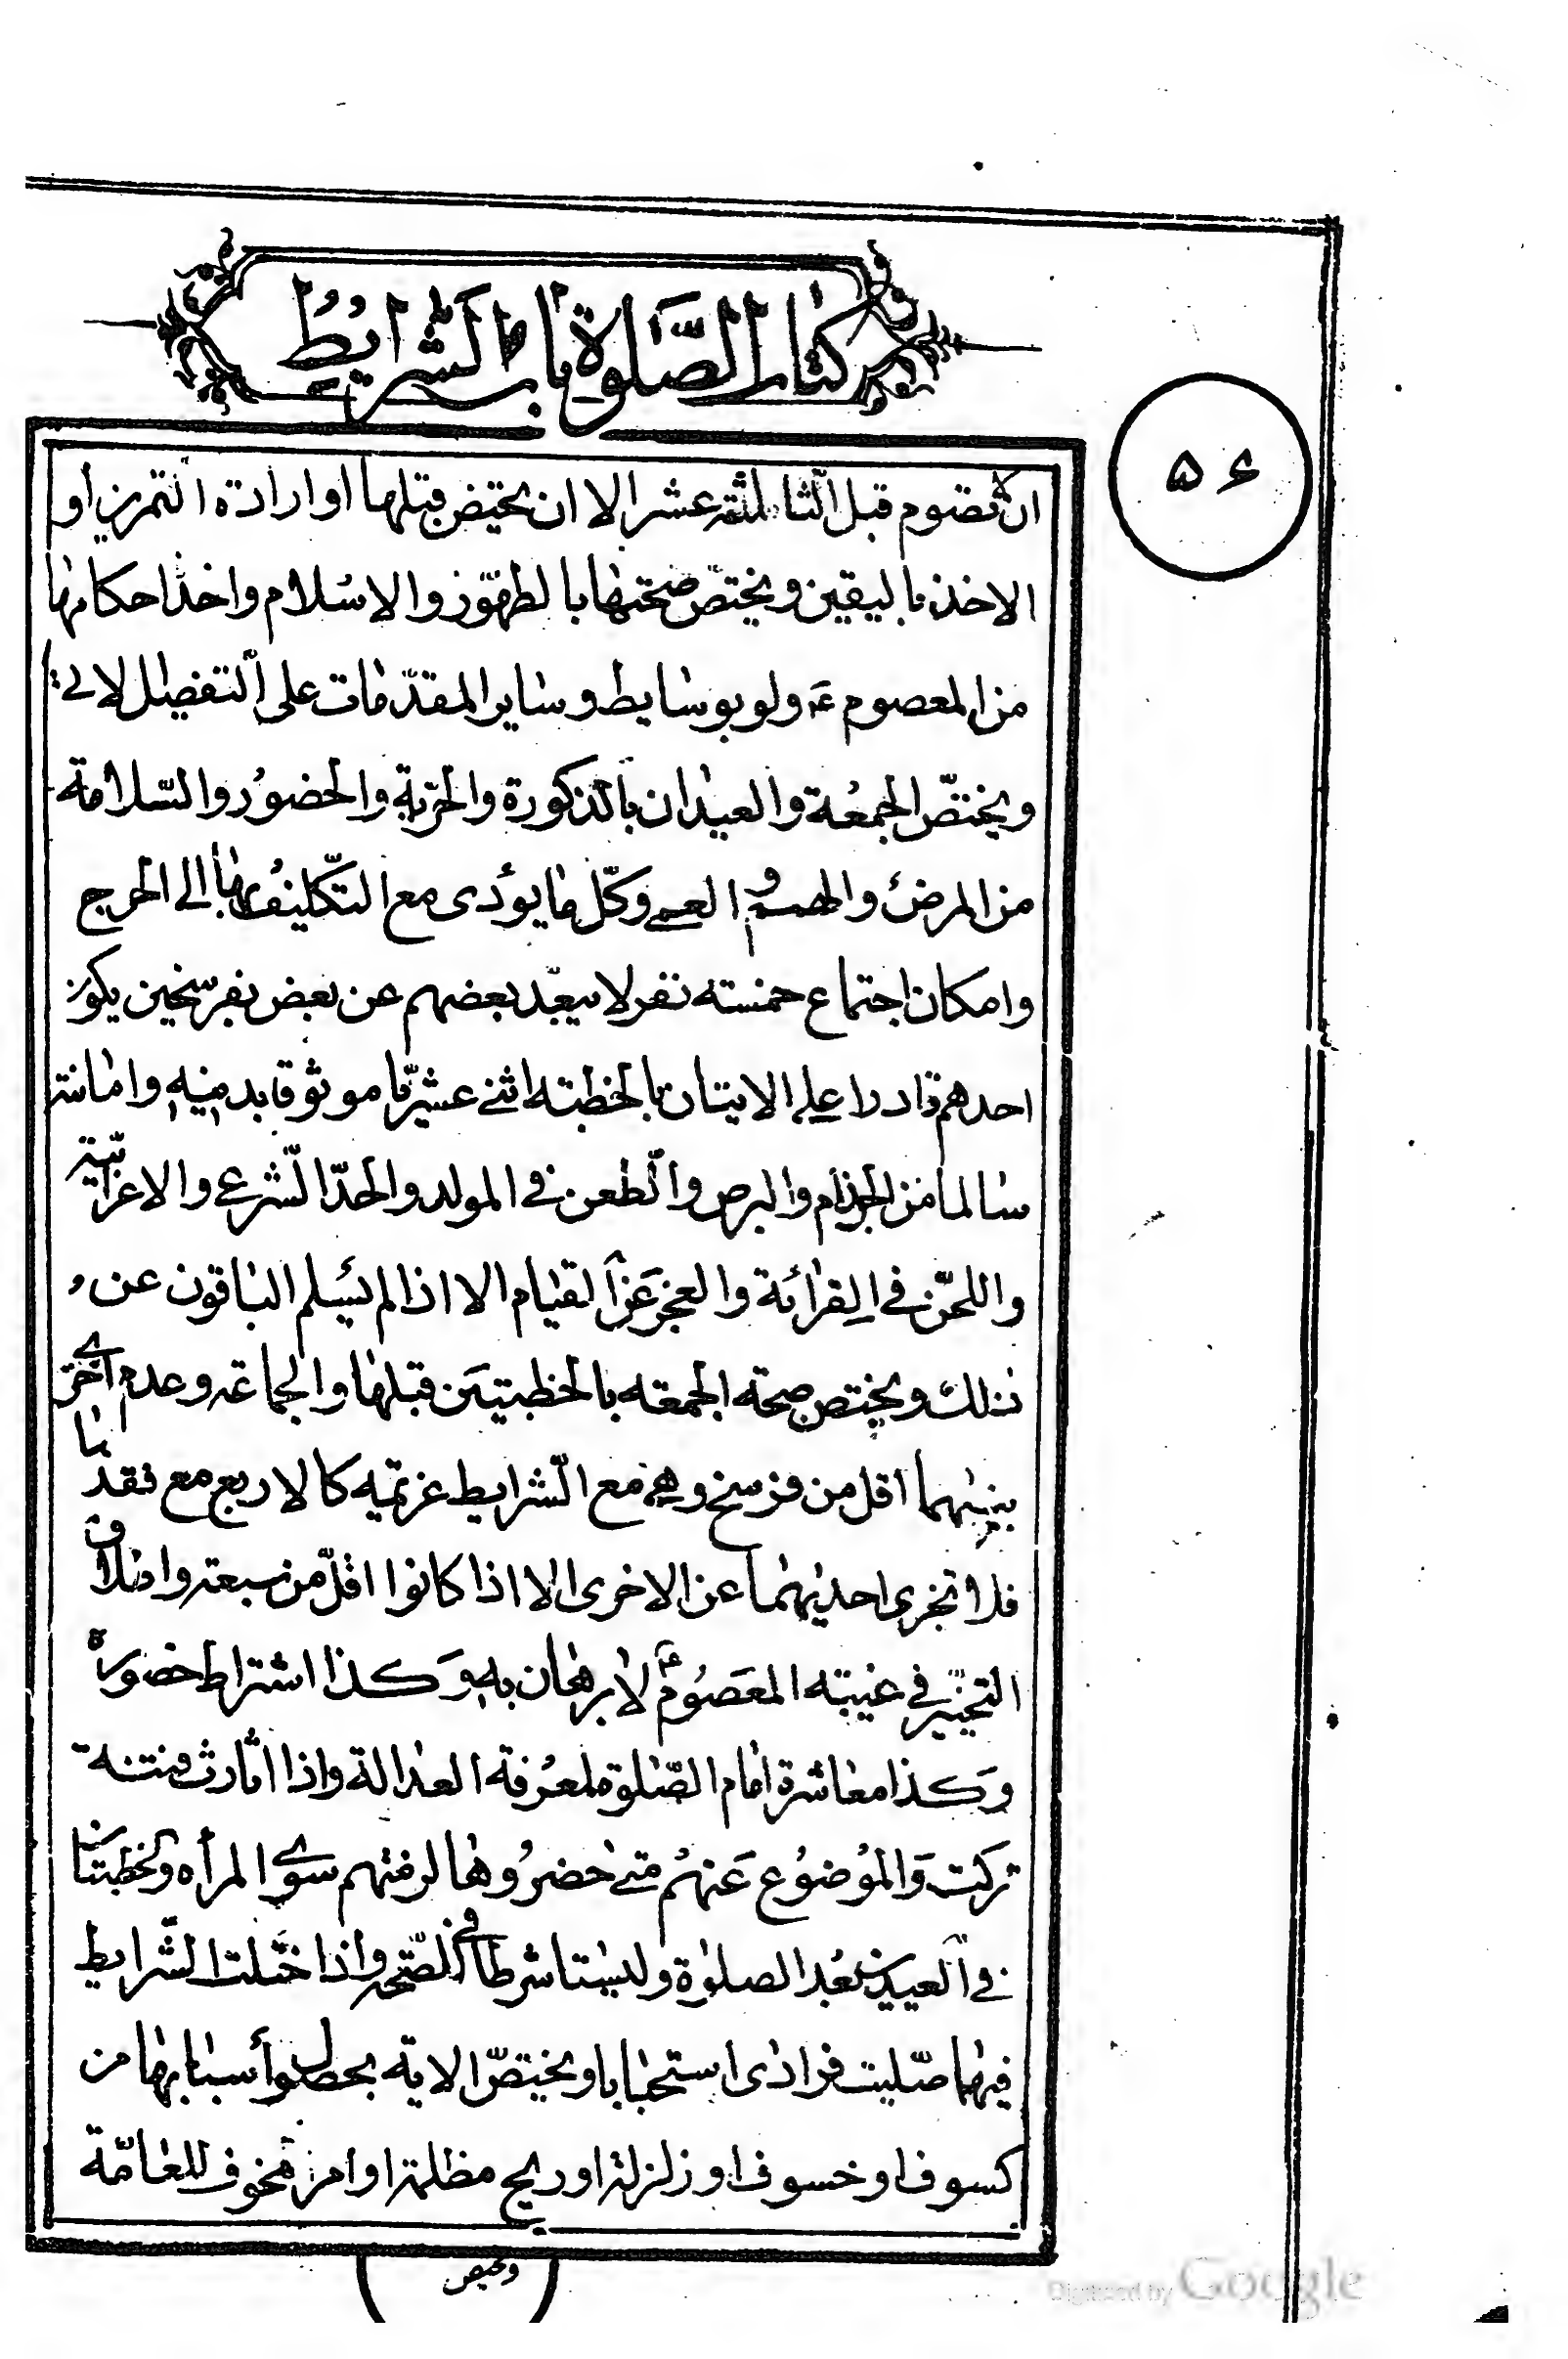 كتاب الصّلوة باب الشرايط
۵۶
ان لا تصوم قبل الثالثة عشر الا ان تحيض قبلها او ارادة التمرين او
الاخذ باليقين ويختصّ صحتها بالطهور والاسلام واخذ احكامها
من المعصوم ع ولو بوسايط وساير المقدّمات على التفصيل الاتي
ويختصّ الجمعة والعيدان بالذكورة والحريّة والحضور والسّلامة
من المرض والهم والعمى وكلّ ما يؤدى مع التكليف بها الى الحرج
وامكان اجتماع خمسة نفر لا يبعد بعضهم عن بعض بفرسخين يكون
احدهم قادرا على الاتيان بالخطبة اثنى عشريّا موثوقا بدينه وامانته
سالما من الجذام والبرص والطعن في المولد والحدّ الشرعي والاعرابيّة
واللحن في القرائة والعجز عن القيام الا اذا لم يسلم الباقون عن
ذلك ويختص صحة الجمعة بالخطبتين قبلها والجماعة وعدم اخرى
بينهما اقل من فرسخ وهي مع الشرايط عزيمة كالاربع مع فقدها
فلا تجزى احديهما عن الاخرى الا اذا كانوا اقلّ من سبعة واطلاق
التخيير في غيبة المعصوم ع لا برهان به وكذا اشتراط حضوره
وكذا معاشرة امام الصّلوة لمعرفة العدالة واذا اثارث فتنة
تركت والموضوع عنهم متى حضروها لزمتهم سوى المرأة والخطبتان
في العيدين بعد الصلوة وليستا شرطا في الصّحة واذا اختلت الشّرايط
فيهما صلّيت فرادى استحبابا ويختصّ الاية بحصول أسبابها من
كسوف او خسوف او زلزلة او ريح مظلمة او امر مخوف للعامّة
ويختص
Digitized by Google